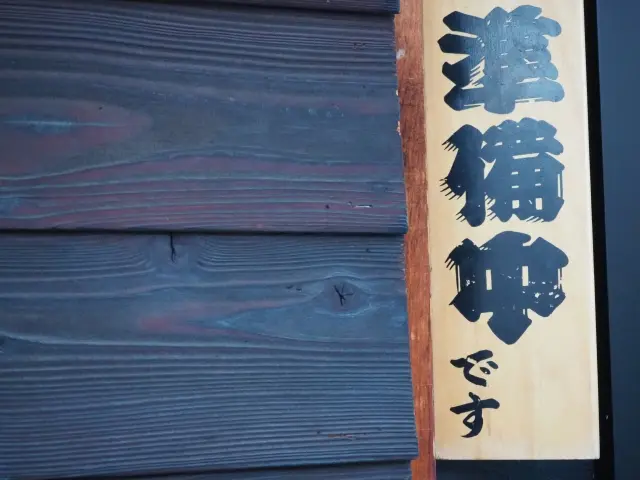 準備中です